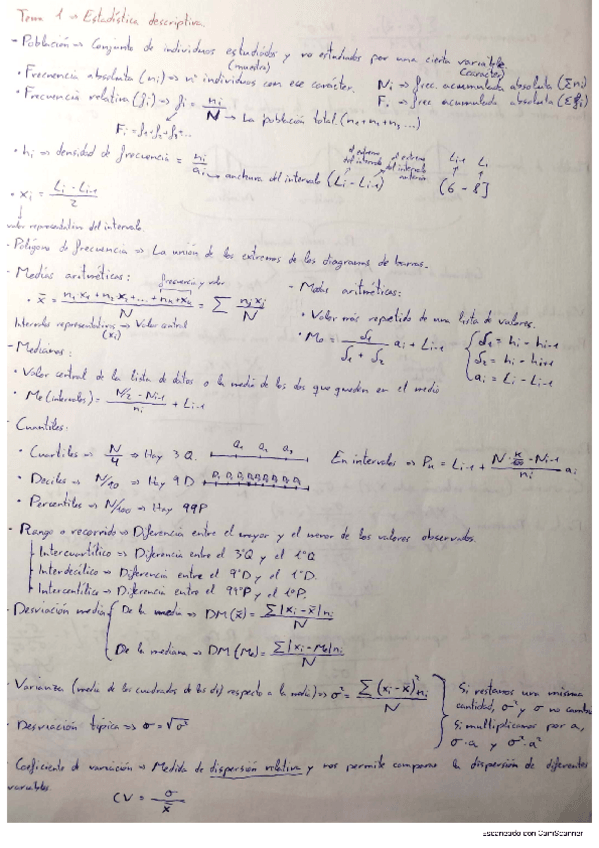 Tema 1 → Estadística descriptiva
- Población => Conjunto de individuos estudiados y no estudiados por una cierta variable.
(muestra) (caracter)
• Frecuencia absoluta (ni) => nº individuos con ese carácter. Ni => frec. acumulada absoluta (Σni)
• Frecuencia relativa (fi) => fi = ni/N → La población total (n1+n1+n3...) Fi => frec acumulada absoluta (Σfi)
Fi = f1+f2+f3...
• hi => densidad de frecuencia = ni/ai → anchura del intervalo (Li - Li-1) el extremo del intervalo el extremo del intervalo anterior Li-1 Li
(6 - 8]
• xi = (Li - Li-1)/2
valor representativo del intervalo.
- Polígono de frecuencia => La unión de los extremos de los diagramas de barras.
- Medias aritméticas: frecuencia y valor
• x̄ = (n1x1+n2x2+...+nkxk)/N = Σ nixi/N
Intervalos representativos → Valor central
(xi)
- Modas aritméticas:
• Valor más repetido de una lista de valores.
• Mo = δ1/(δ1 + δ2) ai + Li-1 { δ1 = hi - hi-1
δ2 = hi - hi+1
ai = Li - Li-1
- Medianas:
• Valor central de la lista de datos o la media de los dos que queden en el medio
• Me (intervalos) = (N/2 - Ni-1)/ni + Li-1
- Cuantiles:
• Cuartiles => N/4 → Hay 3 Q. En intervalos => Pk = Li-1 + (N · k/100 - Ni-1)/ni ai
• Deciles => N/10 => Hay 9 D
• Percentiles => N/100 => Hay 99P
- Rango o recorrido => Diferencia entre el mayor y el menor de los valores observados.
Intercuartílico => Diferencia entre el 3ºQ y el 1ºQ
Interdecílico => Diferencia entre el 9ºD y el 1ºD.
Intercentílico => Diferencia entre el 99ºP y el 1ºP.
- Desviación media { De la media => DM(x̄) = Σ|xi - x̄|ni/N
De la mediana => DM(Me) = Σ|xi - Me|ni/N
- Varianza (media de los cuadrados de las dis) respecto a la media) => σ² = Σ(xi - x̄)²ni/N
- Desviación típica => σ = √σ²
} Si restamos una misma
cantidad, σ² y σ no cambia
Si multiplicamos por a,
σ·a y σ²·a²
- Coeficiente d variación => Medida de dispersión relativa y nos permite comparar la dispersión de diferentes
variables.
CV = σ/x̄
Escaneado con CamScanner